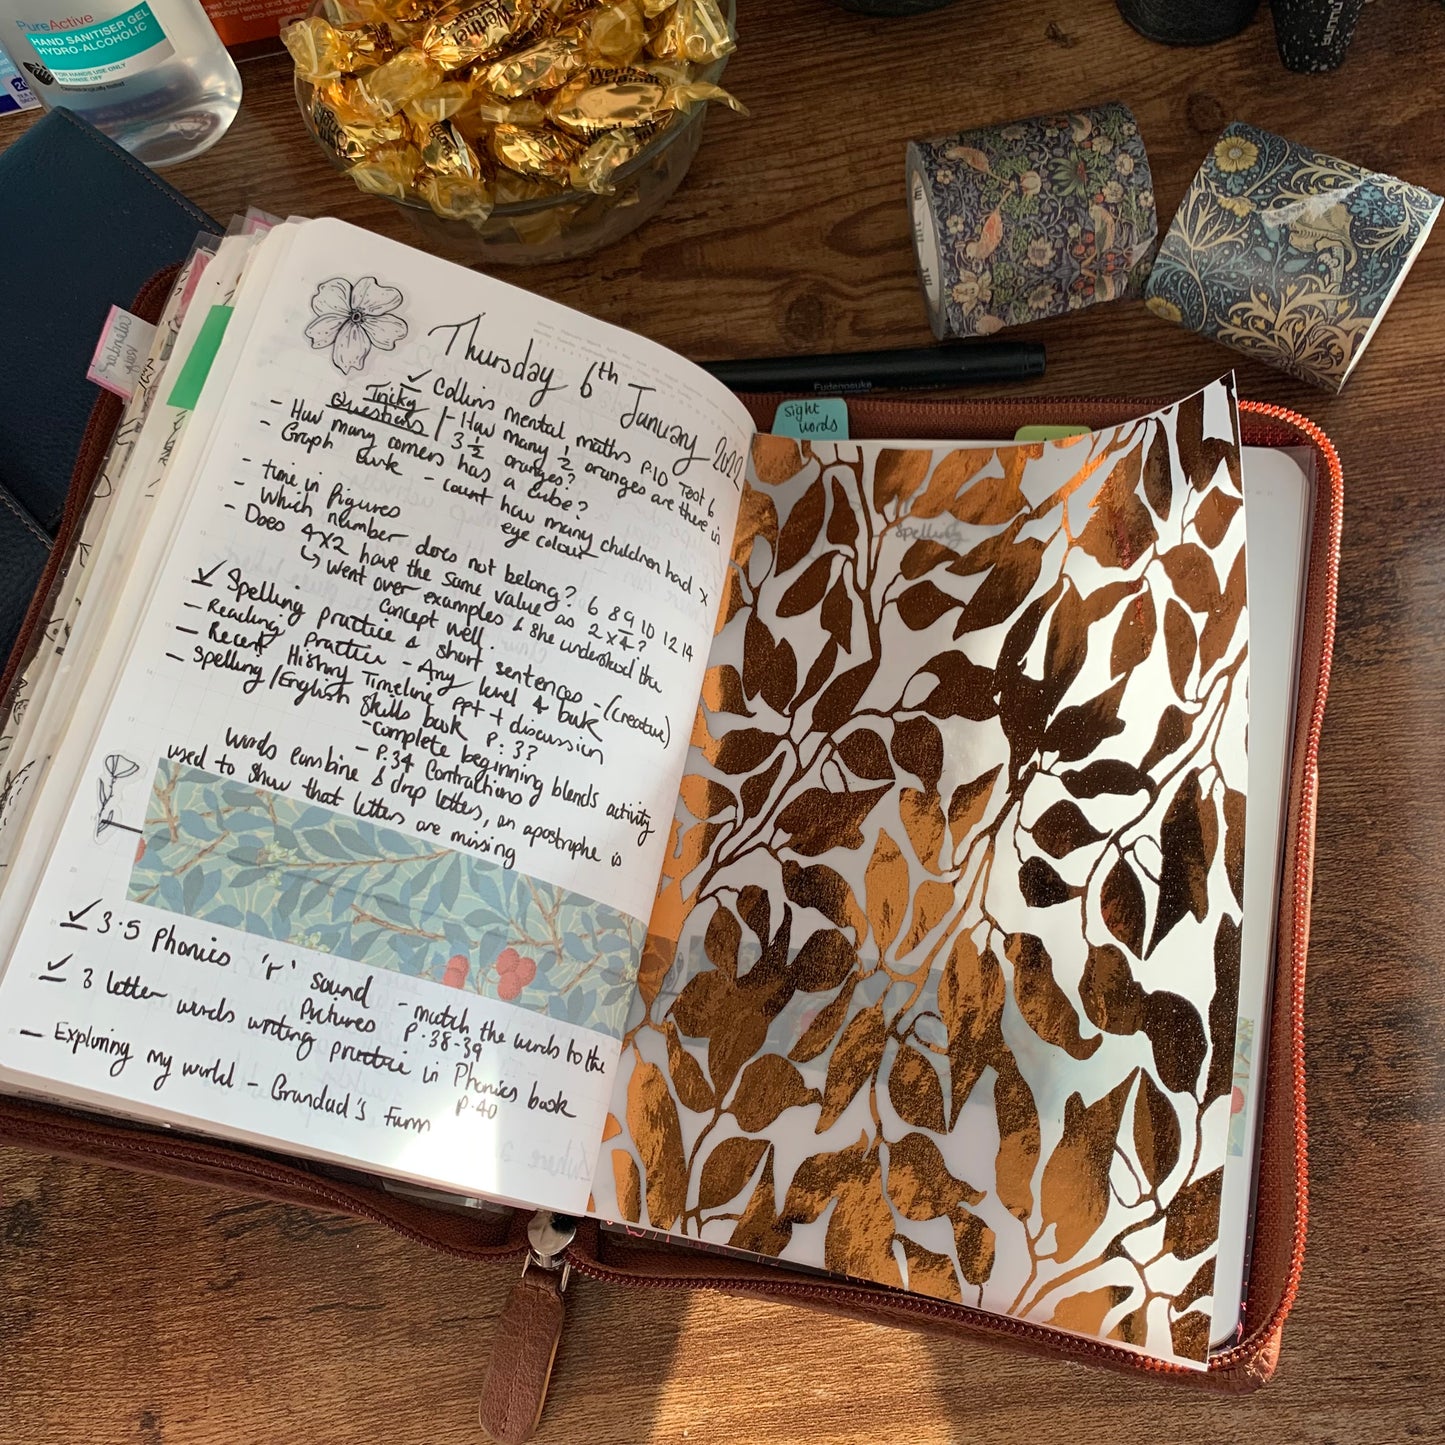 PureActive
HAND SANITISER GEL
HYDRO-ALCOHOLIC
FOR HANDS USE ONLY
NO RINSE OFF
Dermatologically tested
Werther's
Original
Fudenosuke
sight
words
Spelling
Thursday 6th January 2022
✓ Collins mental maths p.10 Test 6
Tricky
Questions
- How many ½ oranges are there in
3½ oranges?
- How many corners has a cube?
- Graph Qwk - count how many children had x
eye colour
- time in figures
- Which number does not belong? 6 8 9 10 12 14
- Does 4x2 have the same value as 2x4?
↳ went over examples & she understood the
concept well.
✓ Spelling practice & short sentences - (creative)
- Reading practice - Any level 4 book
- Recent History Timeline ppt + discussion
- Spelling/English skills book p: 3?
- complete beginning blends activity
- P.34 Contractions
words combine & drop letters, an apostrophe is
used to show that letters are missing
✓ 3.5 Phonics 'r' sound - match the words to the
Pictures p.38-39
✓ 3 letter words writing practice in Phonics book
p.40
- Exploring my world - Grandad's Farm